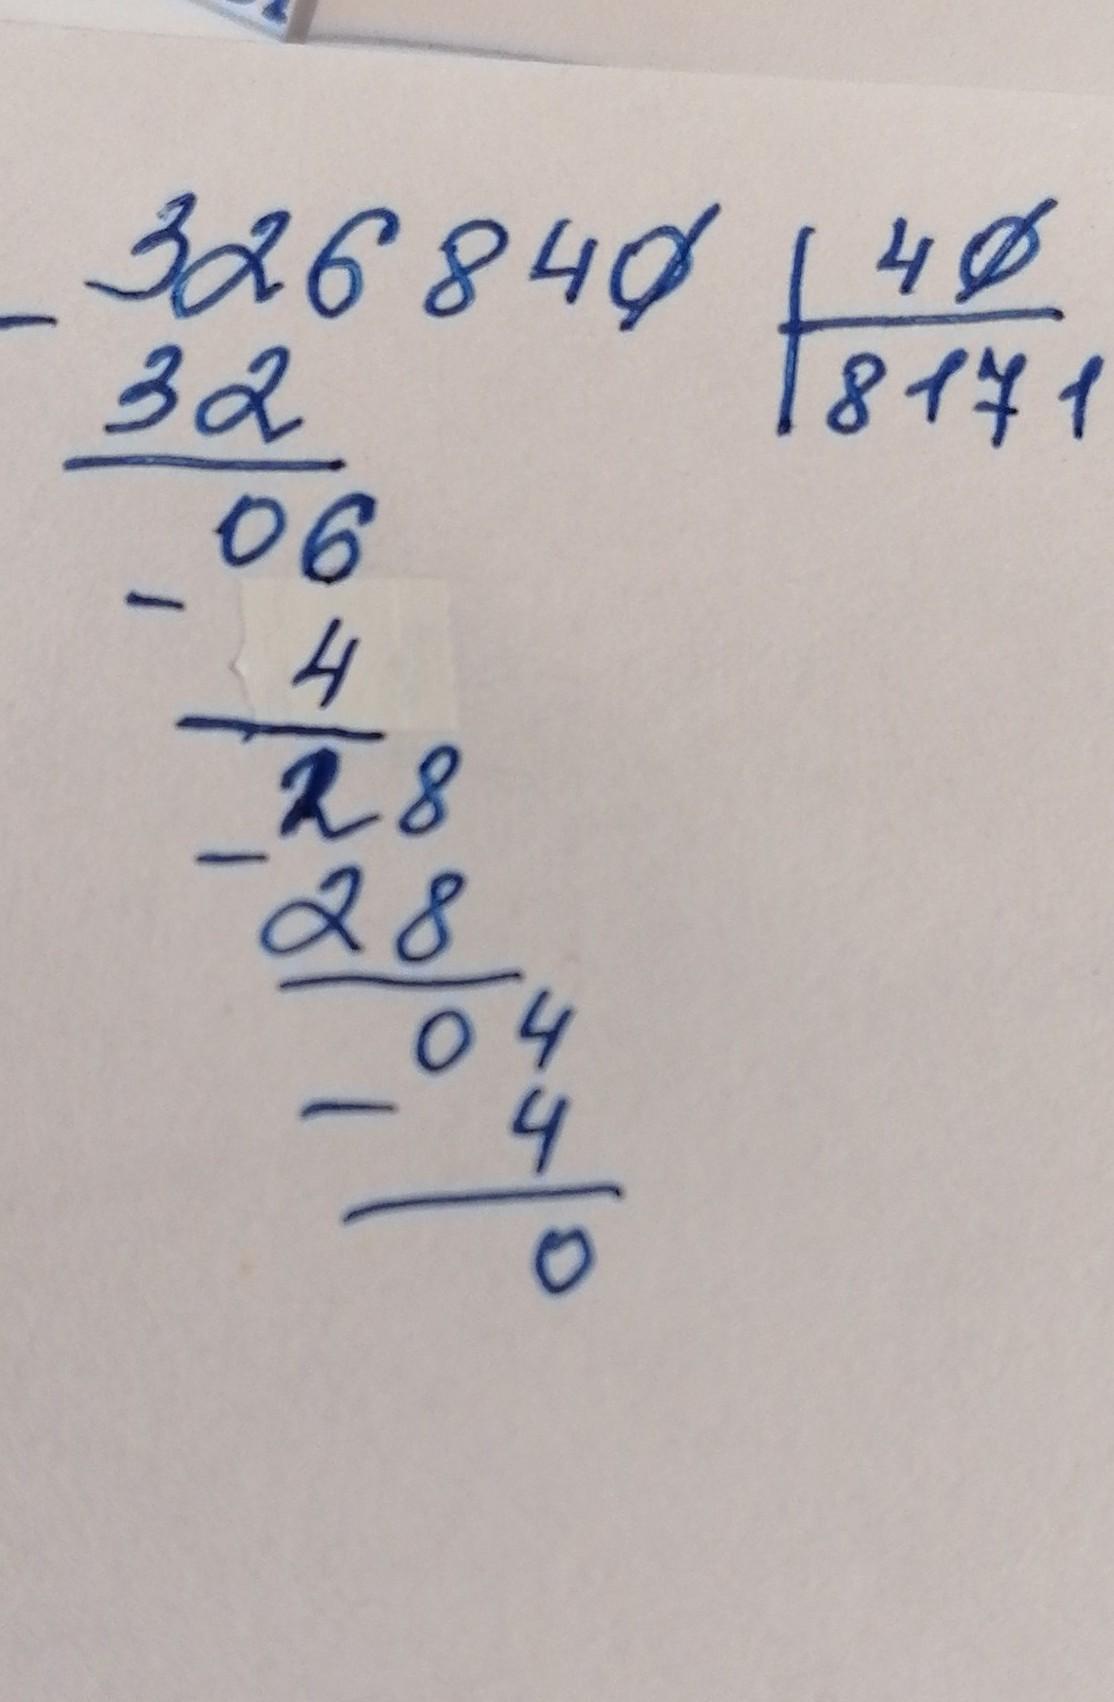 326840 | 40
- 32 | 8171
06
- 4
28
- 28
04
- 4
0